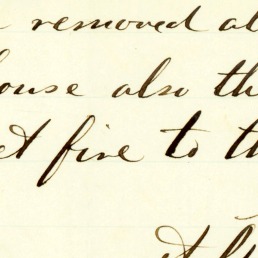 removed al
ouse also th
et fire to th